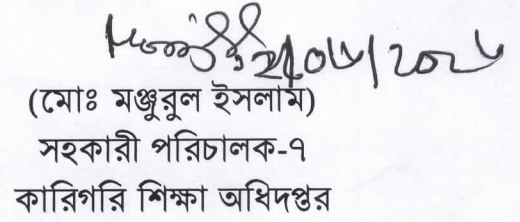 (মোঃ মঞ্জুরুল ইসলাম)
সহকারী পরিচালক-৭
কারিগরি শিক্ষা অধিদপ্তর